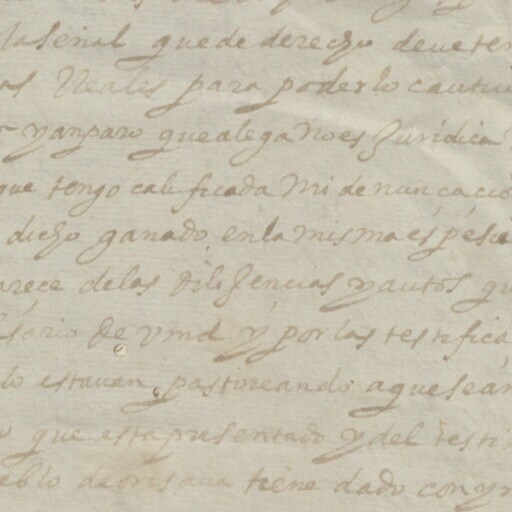 la señal que de derecho deve ten
as Reales para poderlo cautiv
yanparo que alega no es Juridica
que tengo calificada mi denunçacio
dicho ganado en la misma espesie
arece de las diligencias y autos qu
sario de vmd y por las testifica
lo estavan pastoreando a que sean
que esta presentado y del testi
eblo de orisava tiene dado con yn